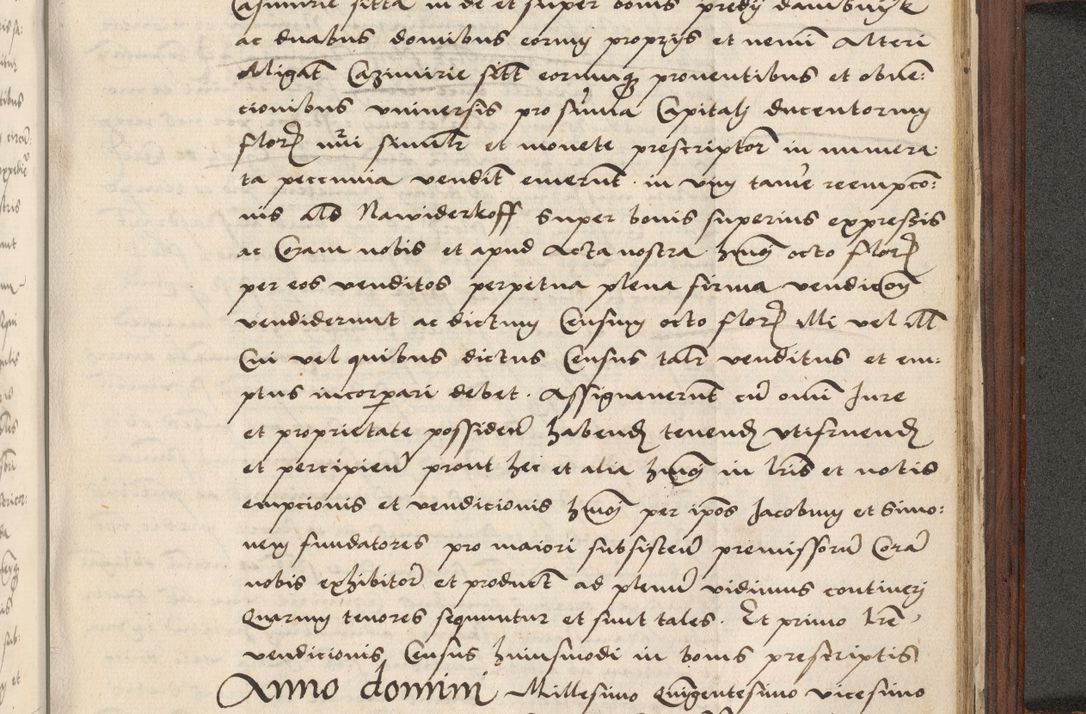 Casimirie sitta in de et super bonis predij
ac duabus domibus eorum proprijs et nemini Alteri
Obligat Cazimirie sitt eorumq proventibus et obven:
cionibus vniversis pro suma Capitali ducentorum
flor nri similr et monete prescriptor in numera
ta peccunia vendit emerunt in vim tamen reempco:
nis als Nawiderkoff super bonis superius expressis
ac Coram nobis et apud Acta nostra hmoi octo flor
per eos venditos perpetua plena firma vendicom
vendiderunt ac dictum Censum octo flor illi vel ill
Cui vel quibus dictus Census talr venditus et em:
ptus incorpari debet. Assignaverunt cu omi Iure
et proprietate possidend habend tenend vtifruend
et percipiend prout hec et alia hmoi in lris et notis
empcionis et vendicionis hmoi per ipos Iacobum et Simo:
nem fundatores pro maiori subsisten premissoru Cora
nobis exhibitor et product ad plenu vidimus contineri
quarum tenores sequuntur et sunt tales. Et primo lre
vendicionis Census huiusmodi in bonis prescriptis
Anno domini Millesimo Quingentesimo vicesimo